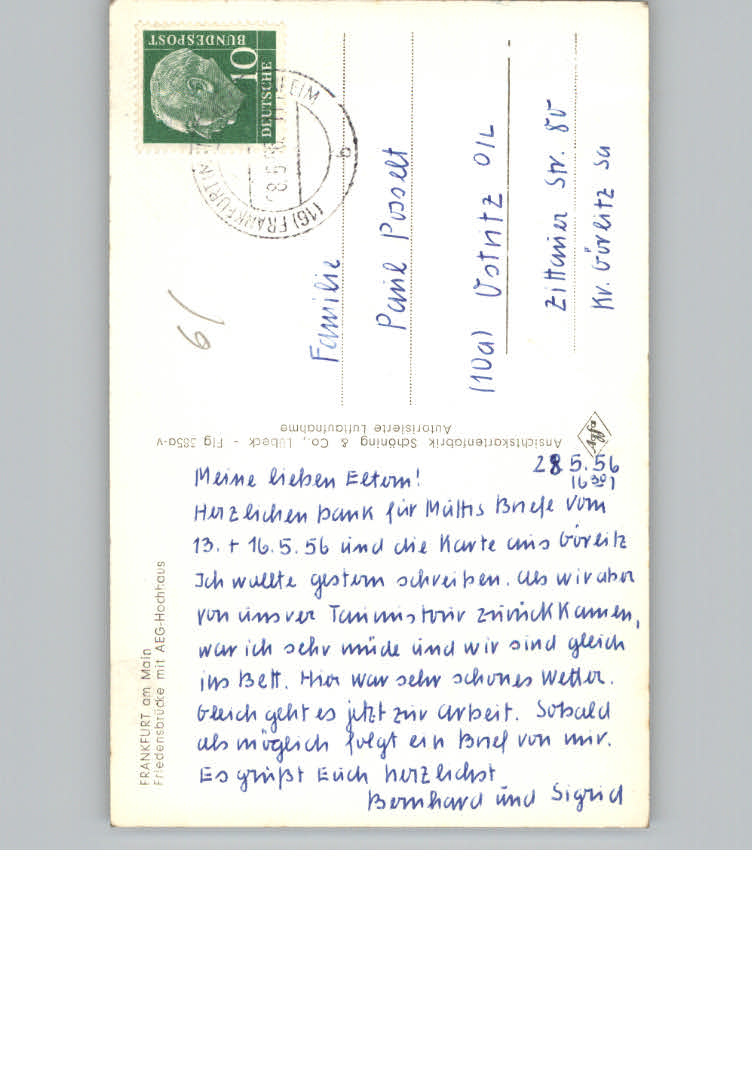 Meine lieben Eltern!
28 5.56
16 30)
Herzlichen Dank für Muttis Briefe vom
13. + 16.5.56 und die Karte aus Görlitz
Ich wollte gestern schreiben. Als wir aber
von unsrer Taunustour zurückkamen,
war ich sehr müde und wir sind gleich
ins Bett. Hier war sehr schönes Wetter.
Gleich geht es jetzt zur Arbeit. Sobald
als möglich folgt ein Brief von mir.
Es grüßt Euch herzlichst
Bernhard und Sigrid
FRANKFURT am Main
Friedensbrücke mit AEG-Hochhaus
Ansichtskartenfabrik Schöning & Co., Lübeck - Flg 385a-v
Autorisierte Luftaufnahme
Familie
Paul Posselt
(10a) Ostritz O/L
Zittauer Str. 8b
Kr. Görlitz
DEUTSCHE
BUNDESPOST
10
(16) FRANKFURT (M
EIM
g
6/